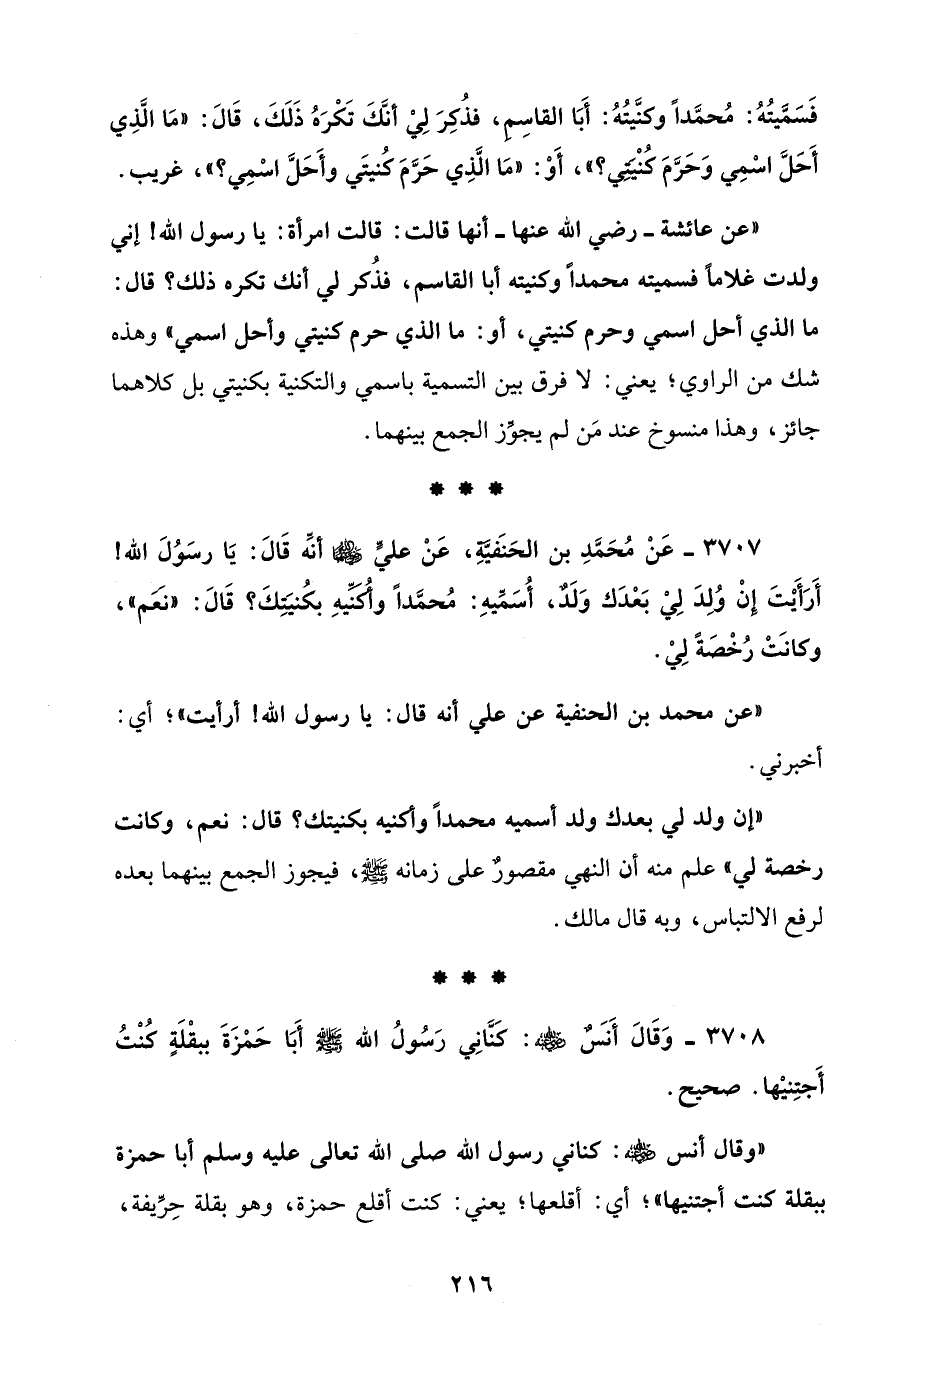 فَسَمَّيتُهُ: مُحمَّداً وكنَّيتُهُ: أَبَا القاسِمِ، فذُكِرَ لِيْ أنَّكَ تَكْرَهُ ذَلَكَ، قَالَ: «مَا الَّذِي
أَحَلَّ اسْمِي وَحَرَّمَ كُنْيَتِي؟»، أَوْ: «مَا الَّذِي حَرَّمَ كُنيتَي وأَحَلَّ اسْمِي؟»، غريب.
«عن عائشة ـ رضي الله عنها ـ أنها قالت: قالت امرأة: يا رسول الله! إني
ولدت غلاماً فسميته محمداً وكنيته أبا القاسم، فذُكر لي أنك تكره ذلك؟ قال:
ما الذي أحل اسمي وحرم كنيتي، أو: ما الذي حرم كنيتي وأحل اسمي» وهذه
شك من الراوي؛ يعني: لا فرق بين التسمية باسمي والتكنية بكنيتي بل كلاهما
جائز، وهذا منسوخ عند مَن لم يجوِّز الجمع بينهما.
* * *
٣٧٠٧ ـ عَنْ مُحَمَّدِ بن الحَنَفيَّةِ، عَنْ عليٍّ ﵁ أنَّه قَالَ: يَا رسَوُلَ الله!
أَرَأَيْتَ إِنْ وُلِدَ لِيْ بَعْدَك وَلَدٌ، أُسَمِّيهِ: مُحمَّداً وأُكَنِّيهِ بكُنيَتِكَ؟ قَالَ: «نعَم»،
وكانَتْ رُخْصَةً لِيْ.
«عن محمد بن الحنفية عن علي أنه قال: يا رسول الله! أرأيت»؛ أي:
أخبرني.
«إن ولد لي بعدك ولد أسميه محمداً وأكنيه بكنيتك؟ قال: نعم، وكانت
رخصة لي» علم منه أن النهي مقصورٌ على زمانه ﷺ، فيجوز الجمع بينهما بعده
لرفع الالتباس، وبه قال مالك.
* * *
٣٧٠٨ ـ وَقَالَ أَنَسٌ ﵁: كَنَّانِي رَسُولُ الله ﷺ أَبَا حَمْزَةَ ببقْلَةٍ كُنْتُ
أَجتِنيْها. صحيح.
«وقال أنس ﵁: كناني رسول الله صلى الله تعالى عليه وسلم أبا حمزة
ببقلة كنت أجتنيها»؛ أي: أقلعها؛ يعني: كنت أقلع حمزة، وهو بقلة حِرِّيفة،
٢١٦